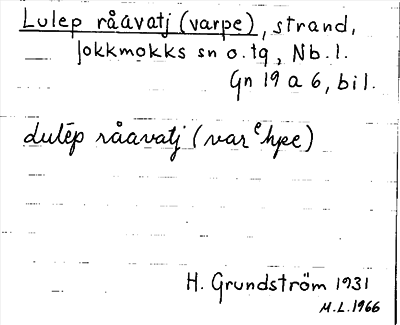 Lulep råavatj (varpe), strand,
Jokkmokks sn o. tg, Nb. l.
Gn 19 a 6, bil.
Lulēp råavatj (varᵉhpe)
H. Grundström 1931
M.L. 1966